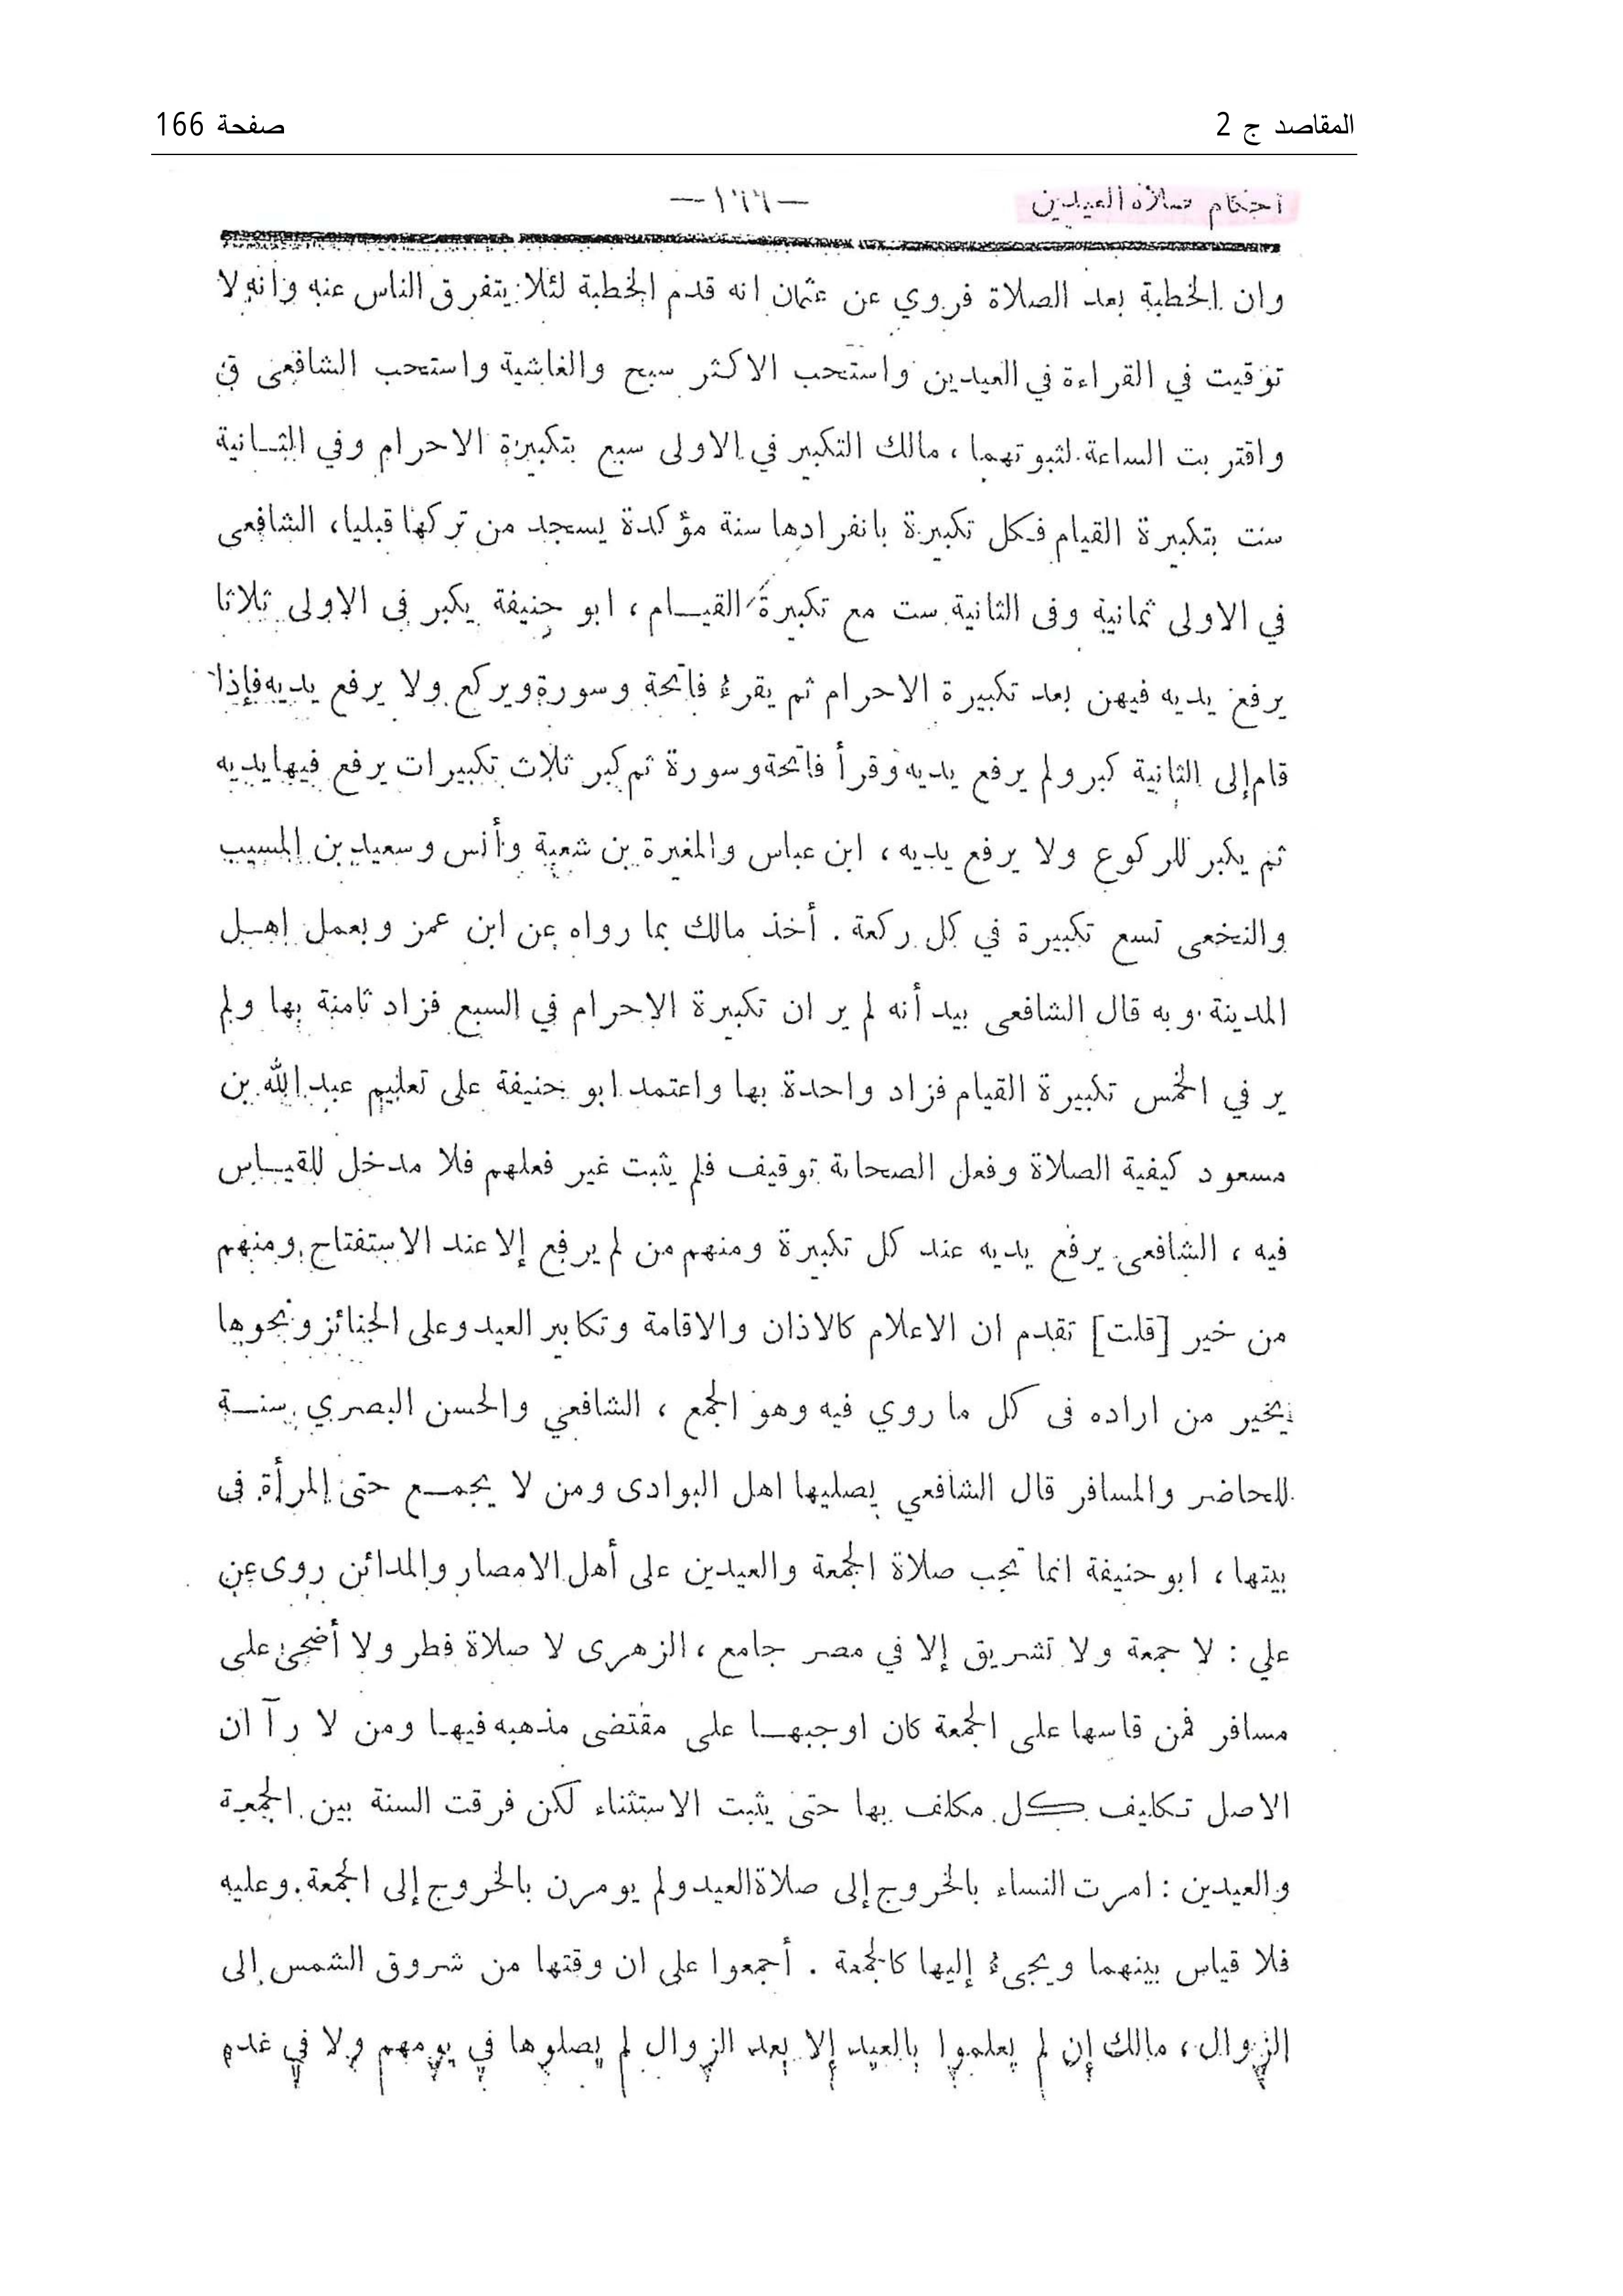 المقاصد ج 2
صفحة 166
احكام صلاة العيدين
—١٦٦—
وان الخطبة بعد الصلاة فروي عن عثمان انه قدم الخطبة لئلا يتفرق الناس عنه وانه لا
توقيت في القراءة في العيدين واستحب الاكثر سبح والغاشية واستحب الشافعى ق
واقتربت الساعة لثبوتهما ، مالك التكبير في الاولى سبع بتكبيرة الاحرام وفي الثـانية
ست بتكبيرة القيام فكل تكبيرة بانفرادها سنة مؤكدة يسجد من تركها قبليا، الشافعى
في الاولى ثمانية وفى الثانية ست مع تكبيرة القيـام ، ابو حنيفة يكبر فى الاولى ثلاثا
يرفع يديه فيهن بعد تكبيرة الاحرام ثم يقرءُ فاتحة وسورة ويركع ولا يرفع يديه فإذا
قام إلى الثانية كبر ولم يرفع يديه وقرأ فاتحة وسورة ثم كبر ثلاث تكبيرات يرفع فيها يديه
ثم يكبر للركوع ولا يرفع يديه ، ابن عباس والمغيرة بن شعبة وأنس وسعيد بن المسيب
والنخعى تسع تكبيرة في كل ركعة . أخذ مالك بما رواه عن ابن عمر وبعمل اهـل
المدينة وبه قال الشافعى بيد أنه لم ير ان تكبيرة الاحرام في السبع فزاد ثامنة بها ولم
ير في الخمس تكبيرة القيام فزاد واحدة بها واعتمد ابو حنيفة على تعليم عبد الله بن
مسعود كيفية الصلاة وفعل الصحابة توقيف فلم يثبت غير فعلهم فلا مدخل للقيـاس
فيه ، الشافعى يرفع يديه عند كل تكبيرة ومنهم من لم يرفع إلا عند الاستفتاح ومنهم
من خير [قلت] تقدم ان الاعلام كالاذان والاقامة وتكابير العيد وعلى الجنائز ونحوها
يخير من اراده فى كل ما روي فيه وهو الجمع ، الشافعي والحسن البصري سنـة
للحاضر والمسافر قال الشافعي يصليها اهل البوادى ومن لا يجمـع حتى المرأة فى
بيتها ، ابو حنيفة انما تجب صلاة الجمعة والعيدين على أهل الامصار والمدائن روى عن
علي : لا جمعة ولا تشريق إلا في مصر جامع ، الزهرى لا صلاة فطر ولا أضحى على
مسافر فمن قاسها على الجمعة كان اوجبهـا على مقتضى مذهبه فيهـا ومن لا رآ ان
الاصل تكليف كل مكلف بها حتى يثبت الاستثناء لكن فرقت السنة بين الجمعة
والعيدين : امرت النساء بالخروج إلى صلاة العيد ولم يومرن بالخروج إلى الجمعة. وعليه
فلا قياس بينهما ويجىءُ إليها كالجمعة . أجمعوا على ان وقتها من شروق الشمس إلى
الزوال ، مالك إن لم يعلموا بالعيد إلا بعد الزوال لم يصلوها في يومهم ولا في غدم